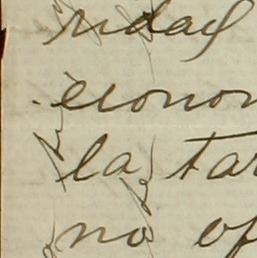 ridad
econom
la tar
no of